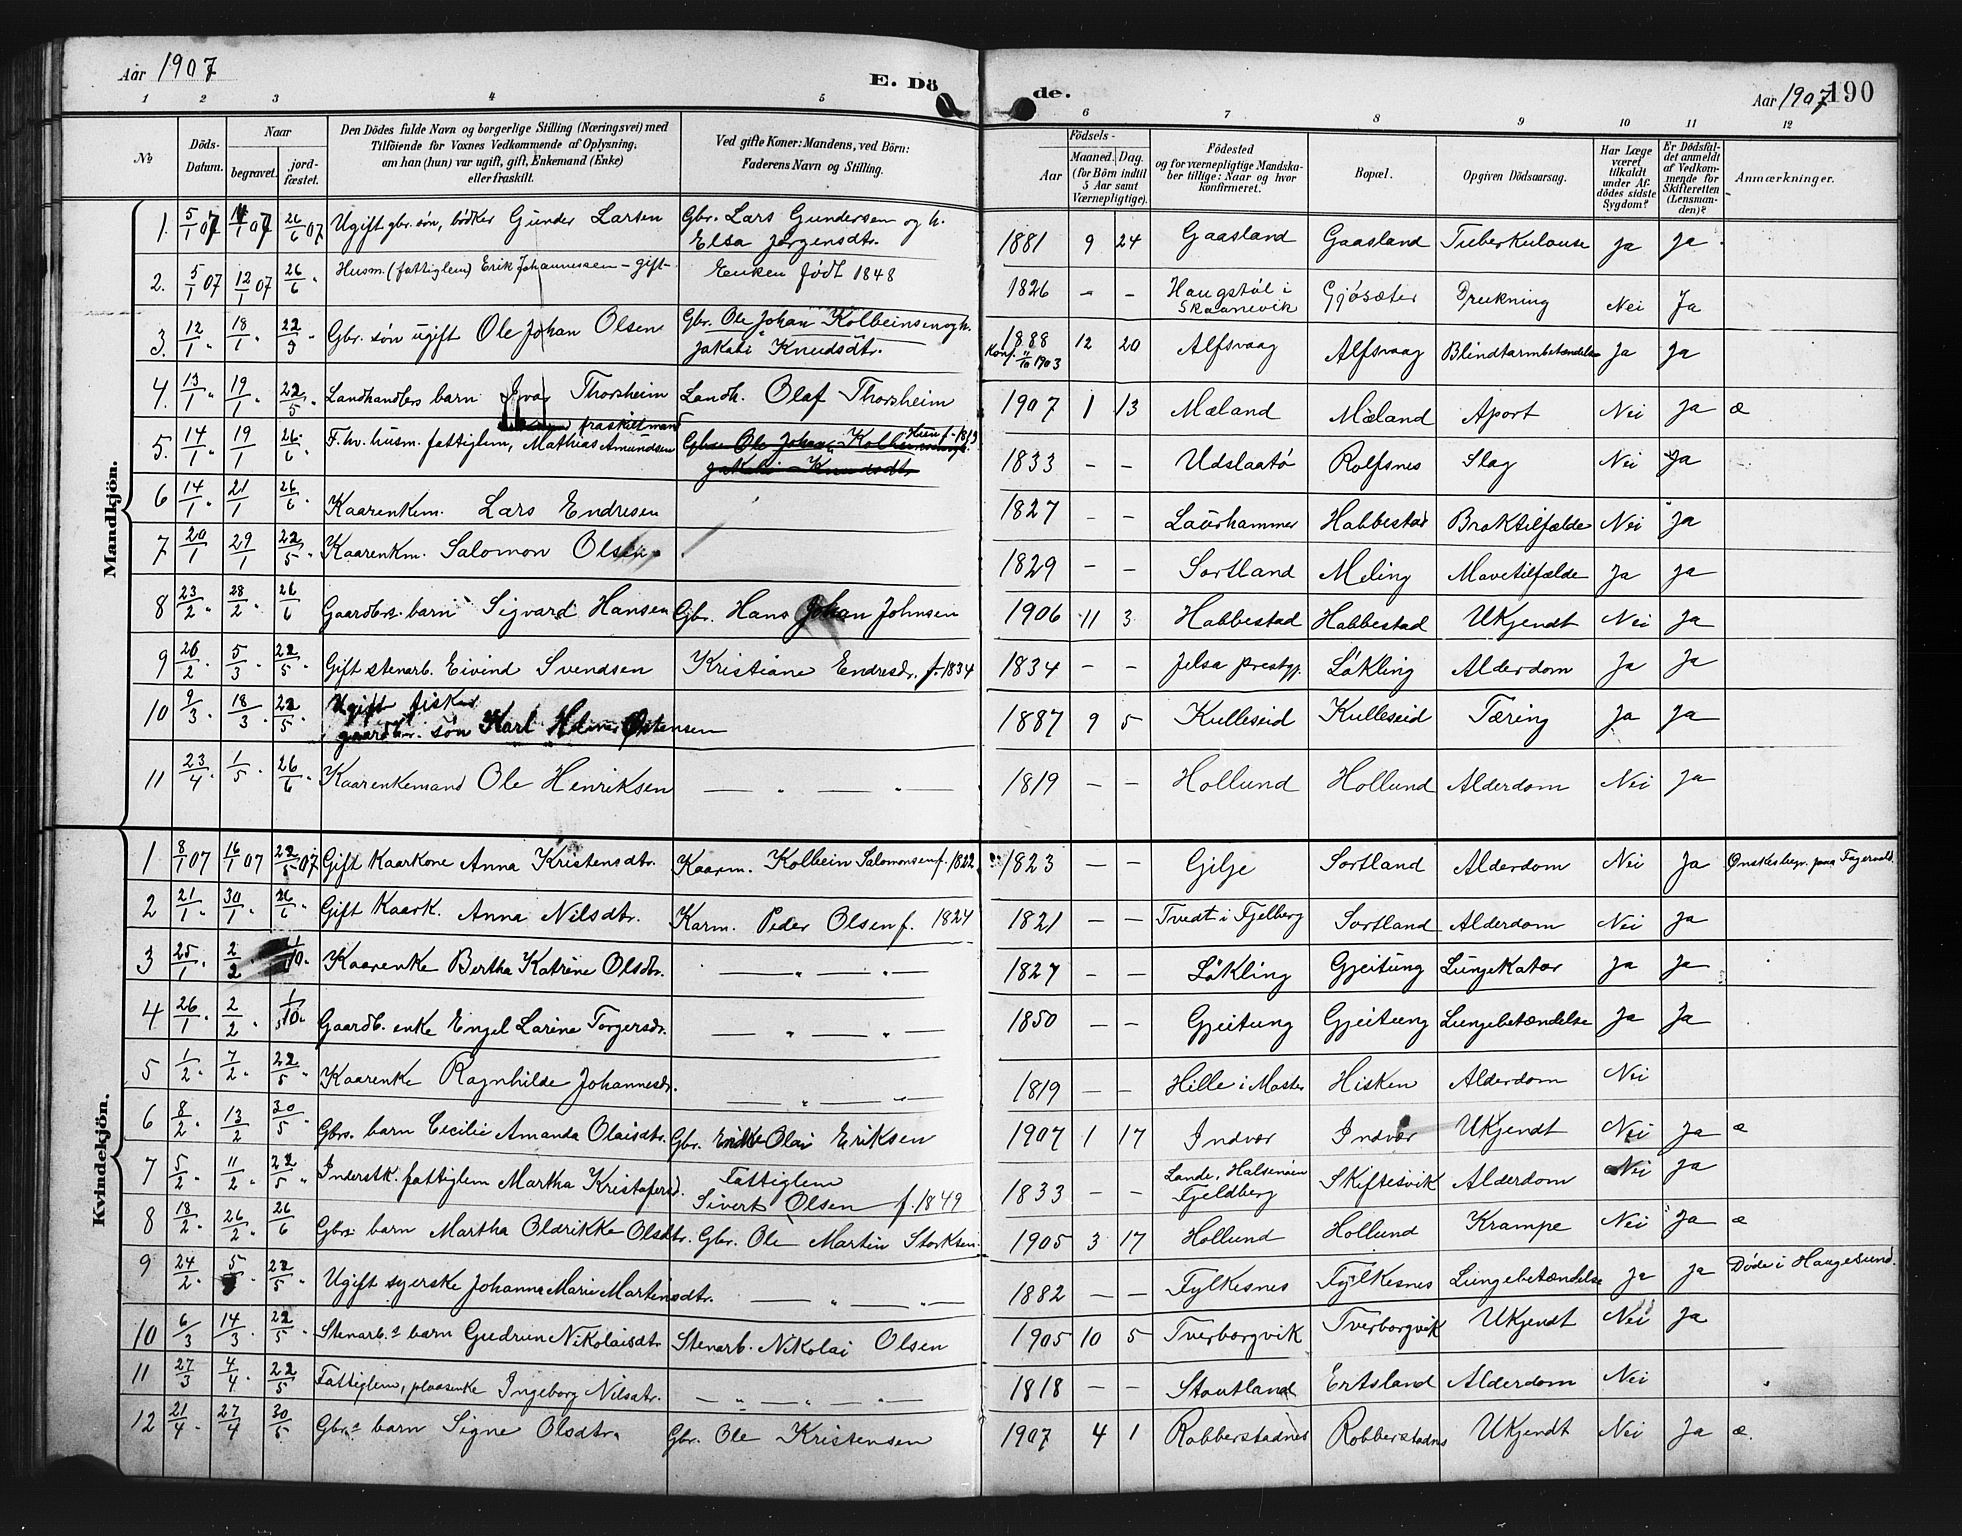 Aar 1907
E. Dö
de.
Aar 1907
190
1 2 3 4 5 6 7 8 9 10 11 12
No
Döds-Datum.
Naar
begravet.
jord-fæstet.
Den Dödes fulde Navn og borgerlige Stilling (Næringsvei) med
Tilföiende for Voxnes Vedkommende af Oplysning,
om han (hun) var ugift, gift, Enkemand (Enke)
eller fraskilt.
Ved gifte Koner: Mandens, ved Börn:
Faderens Navn og Stilling.
Födsels-
Aar
Maaned. Dag.
(for Börn indtil
5 Aar samt
Værnepligtige).
Födested
og for værnepligtige Mandska-
ber tillige: Naar og hvor
konfirmeret.
Bopæl.
Opgiven Dödsaarsag.
Har Læge
været
tilkaldt
under Af-
dödes sidste
Sygdom?
Er Dödsfal-
det anmeldt
af Vedkom-
mende for
Skifteretten
(Lensman-
den)?
Anmærkninger.
Mandkjön.
1. 5/1 07 11/1 07 26/6 07 Ugift gbr. søn, bødker Gunder Larsen Gbr. Lars Gundersen og h. Elsa Jørgensdtr. 1881 9 24 Gaasland Gaasland Tuberkulouse Ja Ja
2. 5/1 07 12/1 07 26/6 " Husm. (fattiglem) Erik Johannessen - gift - Enken født 1848 1826 - - Haugstøl i Skaanevik Gjøsæter Drukning Nei Ja
3. 12/1 " 18/1 " 22/9 " Gbr. søn ugift Ole Johan Olsen Gbr. Ole Johan Kolbeinsen og h. Jakobi Knudsdtr. 1888 Konf. 11/10 1903 12 20 Alfsvaag Alfsvaag Blindtarmbetændelse Ja Ja
4. 13/1 " 19/1 " 22/5 " Landhandlers barn Ivar Thorsheim Landh. Olaf Thorsheim 1907 1 13 Mæland Mæland Aport Nei Ja æ
5. 14/1 " 19/1 26/6 " F. hv. husm. fattiglem, Mathias Amundsen fraskilt mand Hun f. 1813 Ole Johan Kolbeinsen Jakobi Knudsdtr. 1833 - - Udslaatø Rolfsnes Slag Nei Ja
6 14/1 " 21/1 26/6 " Kaarenkem. Lars Endresen 1827 - - Laurhammer Habbestad Braktilfælde Nei Ja
7 20/1 29/1 22/5 " Kaarenkm. Salomon Olsen 1829 - - Sortland Meling Mavetilfælde Ja Ja
8 23/2 " 28/2 " 26/6 Gaardbrs. barn Sigvard Hansen Gbr. Hans Johan Johnsen 1906 11 3 Habbestad Habbestad Ukjendt Nei Ja
9 26/2 " 5/3 " 22/5 " Gift stenarb. Eivind Svendsen Kristiane Endresdr. f. 1834 1834 - - Jelsa prestgj. Løkling Alderdom Ja Ja
10 9/3 " 18/3 " 22/5 " Ugift fisker gaardbr. søn Karl Helmer Ostensen 1887 9 5 Kulleseid Kulleseid Tæring Ja Ja
11 23/4 " 1/5 " 26/6 " Kaarenkemand Ole Henriksen — " — " — 1819 - - Hollund Hollund Alderdom Nei Ja
Kvindekjön.
1 8/1 07 16/1 07 22/5 07 Gift Kaarkone Anna Kristensdtr. Kaarm. Kolbein Salomonsen f. 1822 1823 - - Gilje Sortland Alderdom Nei Ja Ønskes begr. paa Fagervold.
2 21/1 " 30/1 " 26/6 " Gift Kaark. Anna Nilsdtr. Karm. Peder Olsen f. 1824 1821 - - Tvedt i Fjelberg Sortland Alderdom Nei Ja
3 25/1 " 2/2 " Kaarenke Bertha Katrine Olsdtr. — " — " 1827 - - Løkling Gjeitung Lungekatar Ja Ja
4 26/1 " 2/2 " Gaardb. enke Engel Larine Torgersdr. — " — " 1850 - - Gjeitung Gjeitung Lungebetændelse Ja Ja
5 1/2 " 7/2 " 22/5 " Kaarenke Ragnhilde Johannesdr. — " — " 1819 - - Hille i Moster Hisken Alderdom Nei
6 8/2 " 13/2 30/5 " Gbrs. barn Cecilie Amanda Olaisdtr. Gbr. Olai Eriksen 1907 1 17 Indvær Indvær Ukjendt Nei Ja æ
7 5/2 " 11/2 " 22/5 " Inderstk. fattiglem Martha Kristafersd. Fattiglem Sivert Olsen f. 1849 1833 - - Lande, Halsenøen Fjeldberg Skiftesvik Alderdom Nei Ja
8 18/2 " 26/2 " 26/6 Gbrs barn Martha Oldrikke Olsdtr. Gbr. Ole Martin Storksen 1905 3 17 Hollund Hollund Krampe Nei Ja æ
9 24/2 " 5/3 " 22/5 " Ugift syerske Johanna Marie Martinsdtr. — " — " — 1882 - - Fylkesnes Fylkesnes Lungebetændelse Ja Ja Døde i Haugesund.
10 6/3 14/3 " 22/5 " Stenarb.s barn Gudrun Nikolaisdtr Stenarb. Nikolai Olsen 1905 10 5 Tverborgvik Tverborgvik Ukjendt Nei Ja
11 27/3 4/4 " 22/5 Fattiglem, pladsenke Ingeborg Nilsdtr. — " — " — 1818 - - Stoutland Ertsland Alderdom Nei
12 21/4 " 27/4 30/5 Gbr.s barn Signe Olsdtr. Gbr. Ole Kristensen 1907 4 1 Robberstadnes Robberstadnes Ukjendt Nei Ja æ.